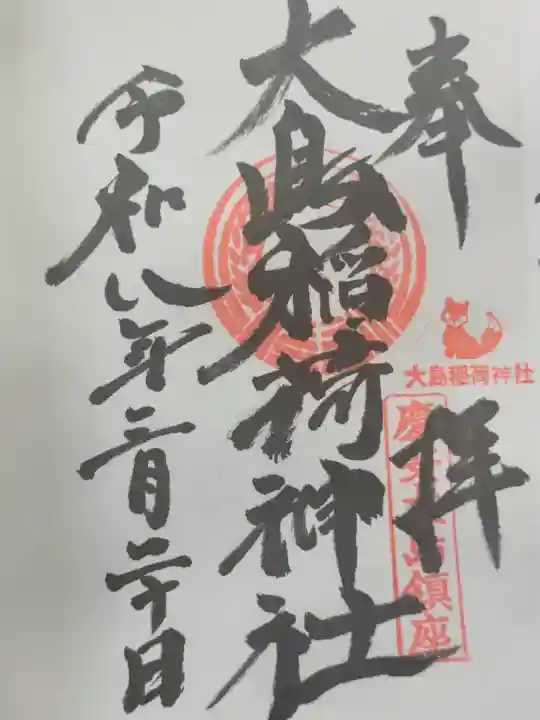 奉拝
大島稲荷神社
鎮座
大島稲荷神社
令和八年二月二十日